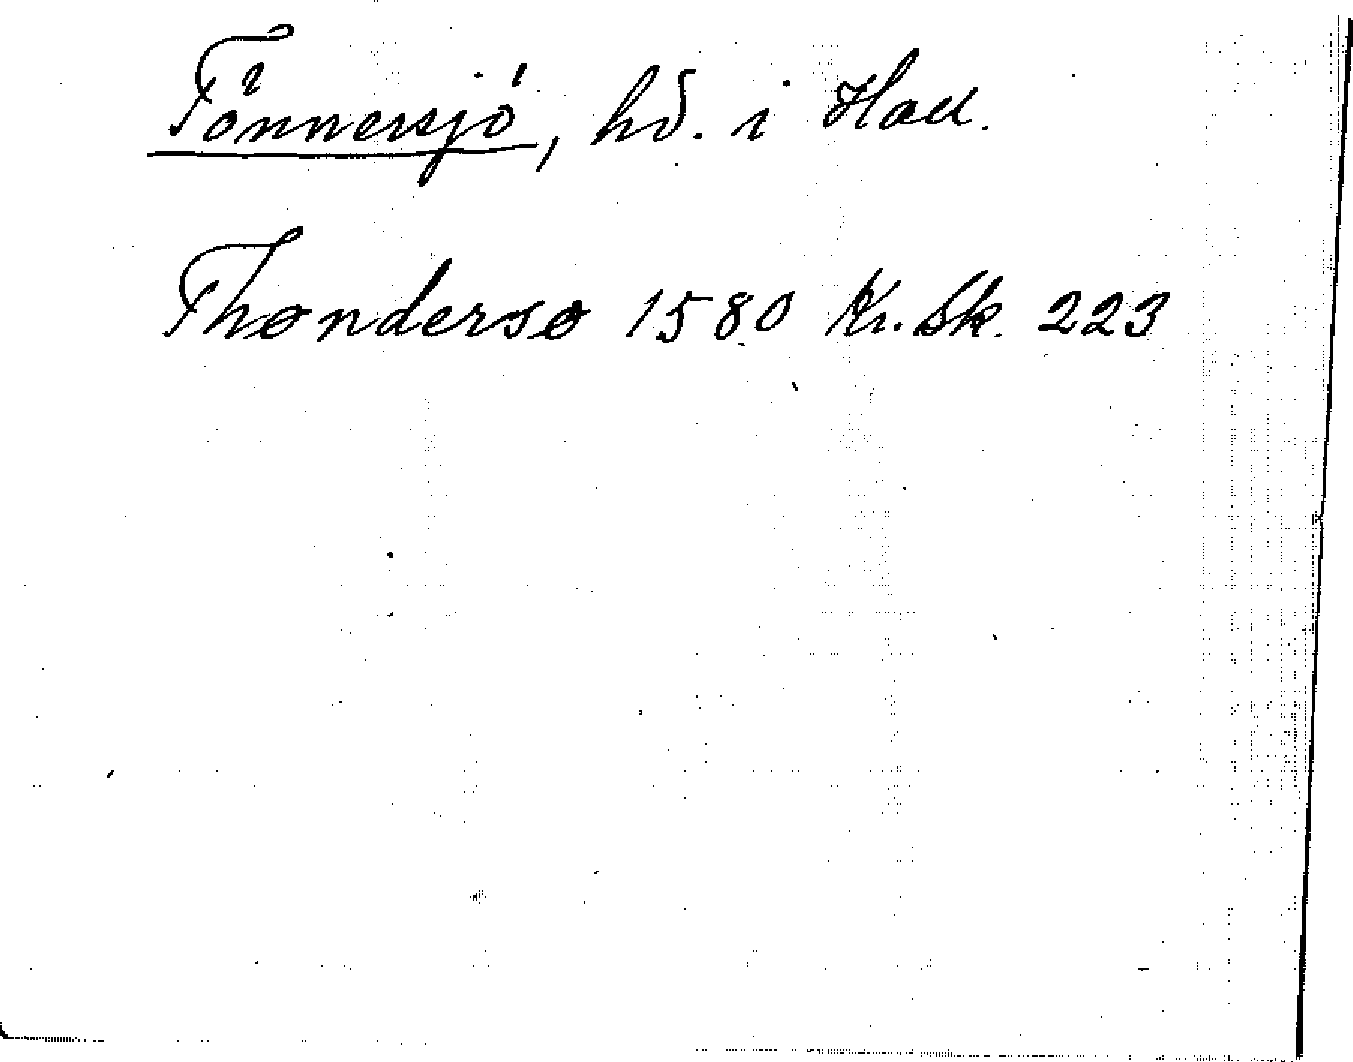 Tönnersjö, hd. i Hall.
Thøndersø 1580 Kr. Sk. 223